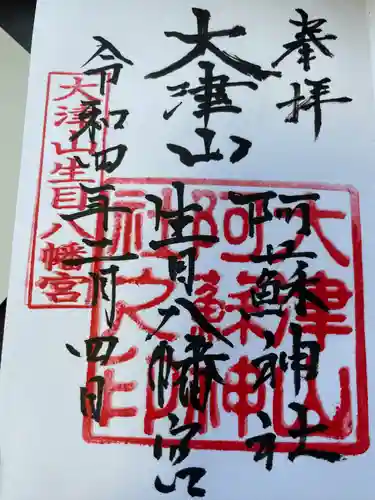 奉拝
阿蘇神社
大津山
生目八幡宮
令和四年二月四日
大津山生目八幡宮
大津山
阿蘇神